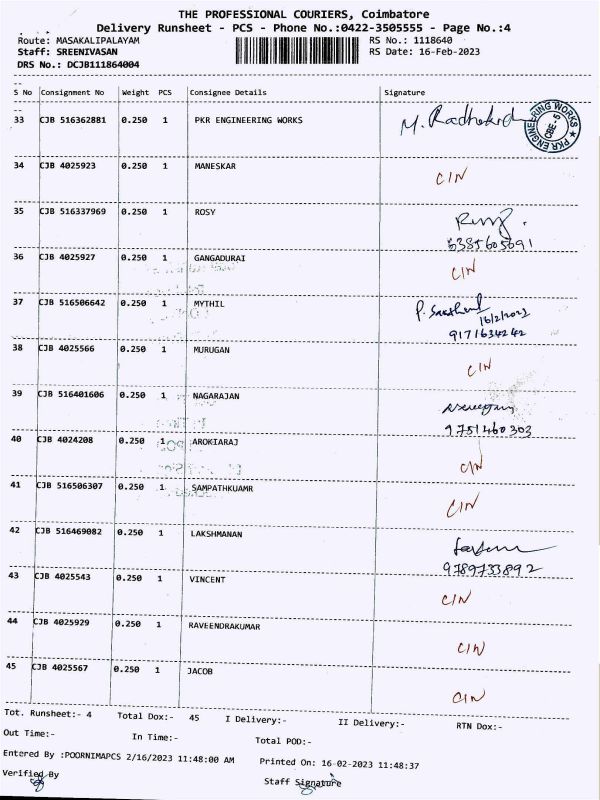 THE PROFESSIONAL COURIERS, Coimbatore
Delivery Runsheet - PCS - Phone No.:0422-3505555 - Page No.:4
Route: MASAKALIPALAYAM RS No.: 1118640
Staff: SREENIVASAN RS Date: 16-Feb-2023
DRS No.: DCJB111864004
S No Consignment No Weight PCS Consignee Details Signature
33 CJB 516362881 0.250 1 PKR ENGINEERING WORKS M. Radhakrish
PKR ENGINEERING WORKS CBE-5
34 CJB 4025923 0.250 1 MANESKAR CIN
35 CJB 516337969 0.250 1 ROSY
6385605691
36 CJB 4025927 0.250 1 GANGADURAI CIN
37 CJB 516506642 0.250 1 MYTHIL
16/2/2023
9171634242
38 CJB 4025566 0.250 1 MURUGAN CIN
39 CJB 516401606 0.250 1 NAGARAJAN
9751460303
40 CJB 4024208 0.250 1 AROKIARAJ CIN
41 CJB 516506307 0.250 1 SAMPATHKUAMR CIN
42 CJB 516469082 0.250 1 LAKSHMANAN
9789733892
43 CJB 4025543 0.250 1 VINCENT CIN
44 CJB 4025929 0.250 1 RAVEENDRAKUMAR CIN
45 CJB 4025567 0.250 1 JACOB CIN
Tot. Runsheet:- 4 Total Dox:- 45 I Delivery:- II Delivery:- RTN Dox:-
Out Time:- In Time:- Total POD:-
Entered By :POORNIMAPCS 2/16/2023 11:48:00 AM Printed On: 16-02-2023 11:48:37
Verified By Staff Signature